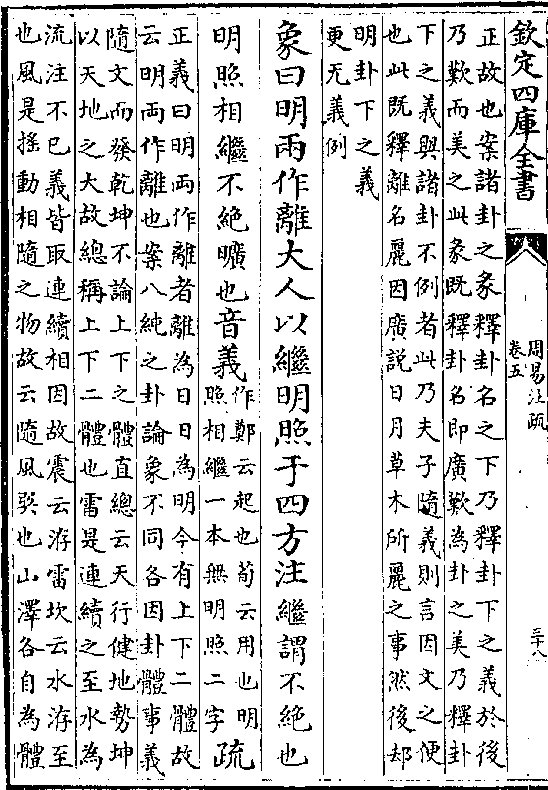 欽定四庫全書
周易注疏
卷五
三十八
正故也案諸卦之彖釋卦名之下乃釋卦下之義於後
乃歎而美之此彖既釋卦名即廣歎為卦之美乃釋卦
下之義與諸卦不例者此乃夫子隨義則言因文之便
也此既釋離名麗因廣說日月草木所麗之事然後却
明卦下之義
更无義例
象曰明兩作離大人以繼明照于四方注繼謂不絶也
明照相繼不絶曠也音義
作鄭云起也荀云用也明
照相繼一本無明照二字
疏
正義曰明兩作離者離為日日為明今有上下二體故
云明兩作離也案八純之卦論象不同各因卦體事義
隨文而發乾坤不論上下之體直總云天行健地勢坤
以天地之大故總稱上下二體也雷是連續之至水為
流注不已義皆取連續相因故震云洊雷坎云水洊至
也風是搖動相隨之物故云隨風巽也山澤各自為體